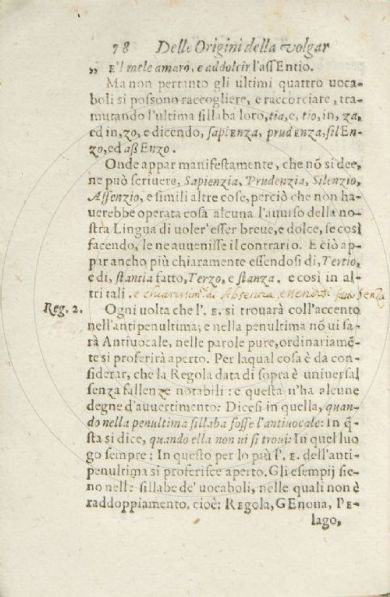 78 Delle Origini della volgar
„ E'l mele amaro, e addolcir l'assEntio.
Ma non pertanto gli ultimi quattro voca-
boli si possono raccogliere, e raccorciare, tra-
mutando l'ultima sillaba loro, tia, e, tio, in, za,
ed in, zo, e dicendo, sapiEnza, prudEnza, silEn-
zo, ed aßEnzo.
Onde appar manifestamente, che nō si dee,
ne può scrivere, Sapienzia, Prudenzia, Silenzio,
Assenzio, e simili altre cose, perciò che non ha-
verebbe operata cosa alcuna l'avviso della no-
stra Lingua di voler' esser breve, e dolce, se così
facendo, le ne avvenisse il contrario. E ciò ap-
par ancho più chiaramente essendosi di, Tertio,
e di, stantia fatto, Terzo, e stanza. e così in al-
tri tali. e
Reg. 2. Ogni volta che l'. E. si trovarà coll'accento
nell'antipenultima; e nella penultima nō vi sa-
rà Antivocale, nelle parole pure, ordinariamē-
te si proferirà aperto. Per laqual cosa è da con-
siderar, che la Regola data di sopra è universal
senza fallenze notabili: e questa n'ha alcune
degne d'avvertimento: Dicesi in quella, quan-
do nella penultima sillaba fosse l'antivocale: In q̄-
sta si dice, quando ella non vi si trovi: In quel luo
go sempre: In questo per lo più l'. E. dell'anti-
penultima si proferisce aperto. Gli esempij sie-
no nelle sillabe de' vocaboli, nelle quali non è
raddoppiamento. cioè: REgola, GEnova, PE-
lago,